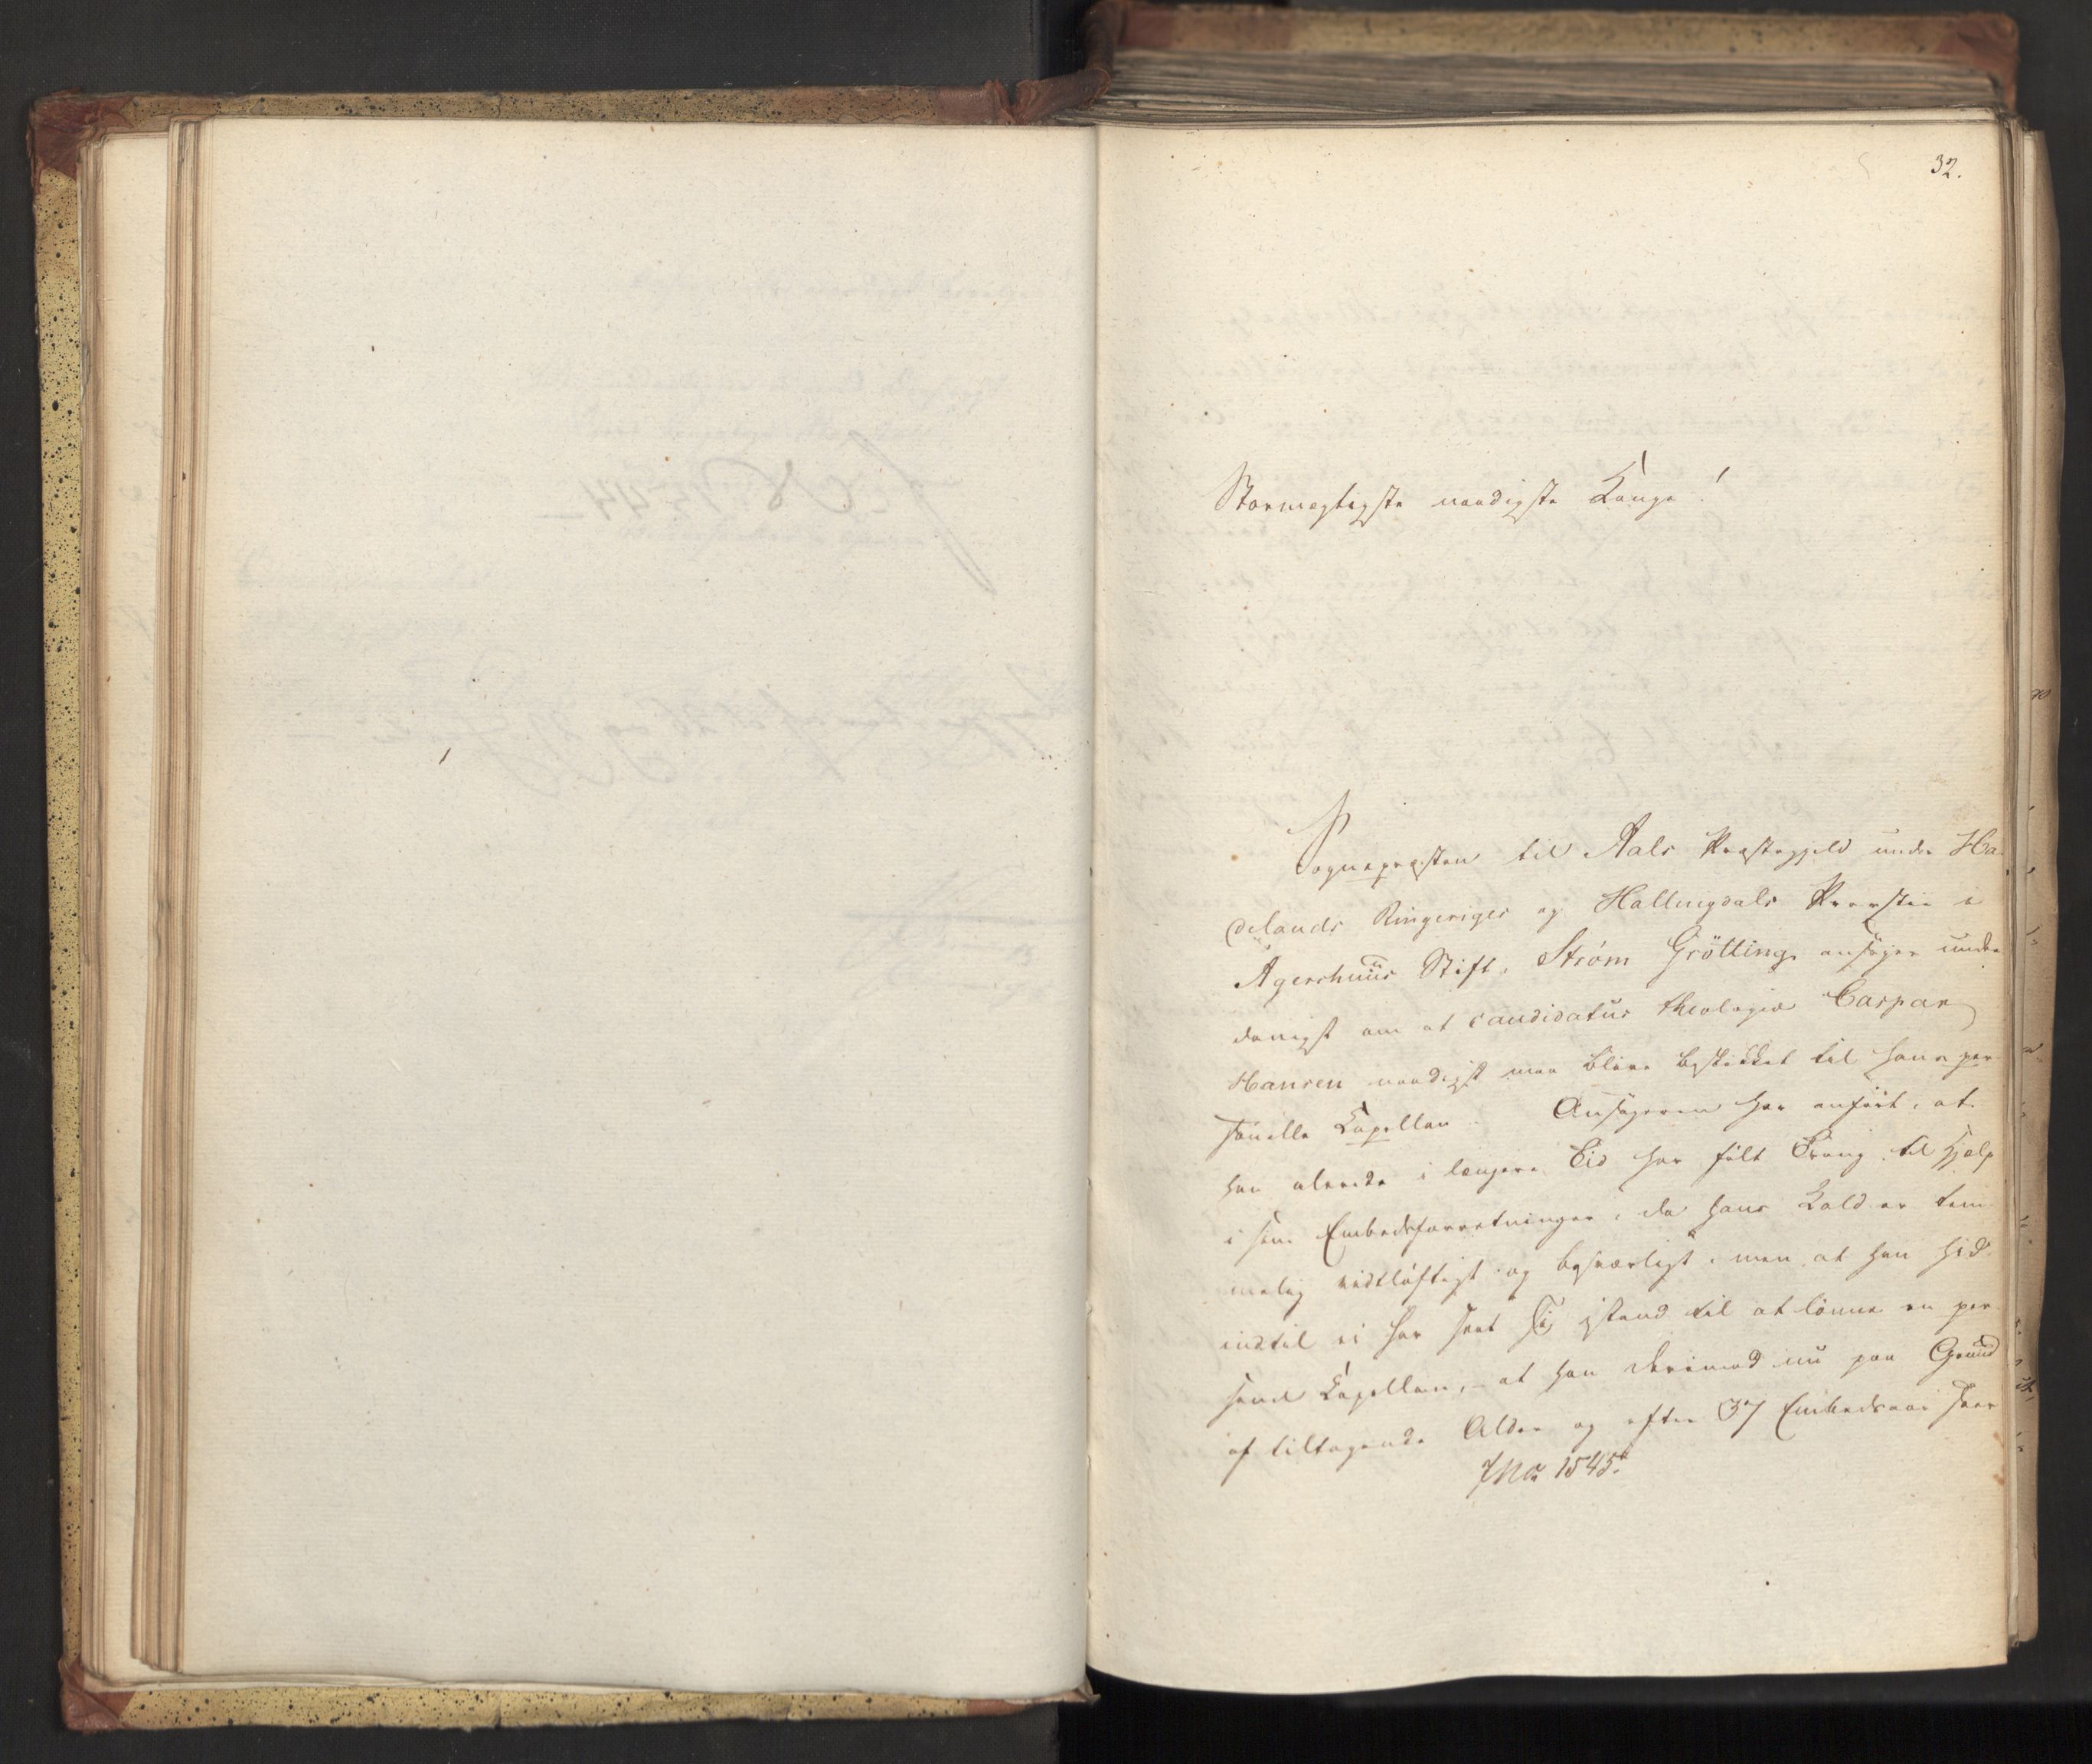 32.
Stormægtigste naadigste Konge!
Sognepræsten til Aals Præstegjeld under Ha-
delands Ringeriges og Hallingdals Provstie i
Agershuus Stift, Strøm Grötting, ansøger under
danigst om at candidatus theologiæ Caspar
Hansen naadigst maa blive beskikket til hans per
sonelle Kapellan. Ansøgeren har anført, at
han alerede i længere Tid har følt Trang til Hjælp
i sine Embedsforretninger, da hans Kald er tem
melig vidtløftigt og besværligt, men at han hid
indtil ei har seet sig istand til at lönne en per
sonel Kapellan, - at han derimod nu paa Grund
af tiltagende Alder og efter 37 Embedsaar seer
JNo 1545.